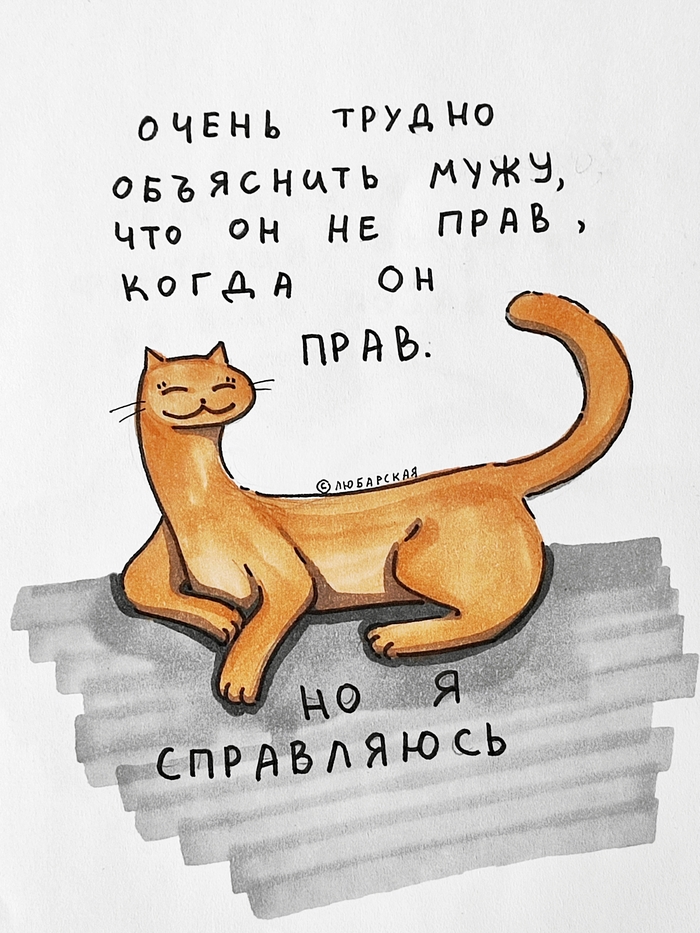 ОЧЕНЬ ТРУДНО
ОБЪЯСНИТЬ МУЖУ,
ЧТО ОН НЕ ПРАВ,
КОГДА ОН
ПРАВ.
© ЛЮБАРСКАЯ
НО Я
СПРАВЛЯЮСЬ